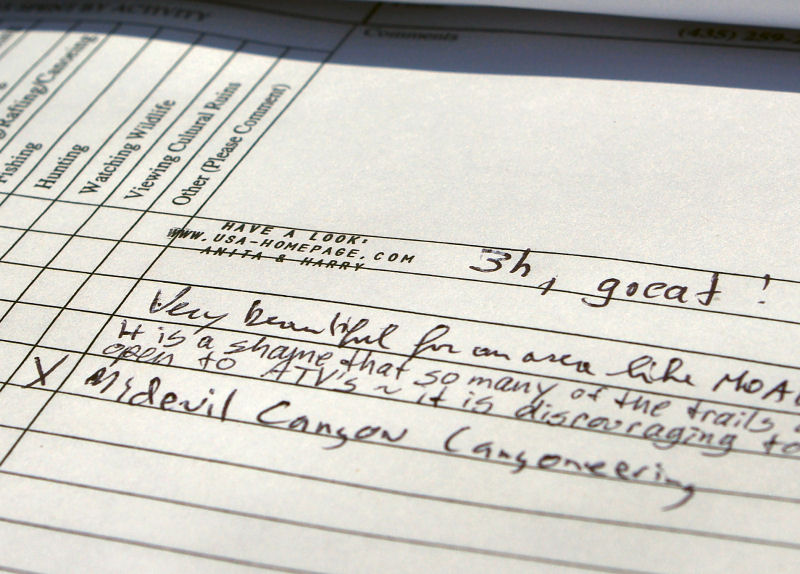 SPENT BY ACTIVITY
Comments
(435) 259-
Rafting/Canoeing
Fishing
Hunting
Watching Wildlife
Viewing Cultural Ruins
Other (Please Comment)
HAVE A LOOK:
WWW.USA-HOMEPAGE.COM
ANITA & HARRY
3h, great!
Very beautiful for an area like MOAB
It is a shame that so many of the trails
open to ATV's ~ it is discouraging to
X Canyon Canyoneering